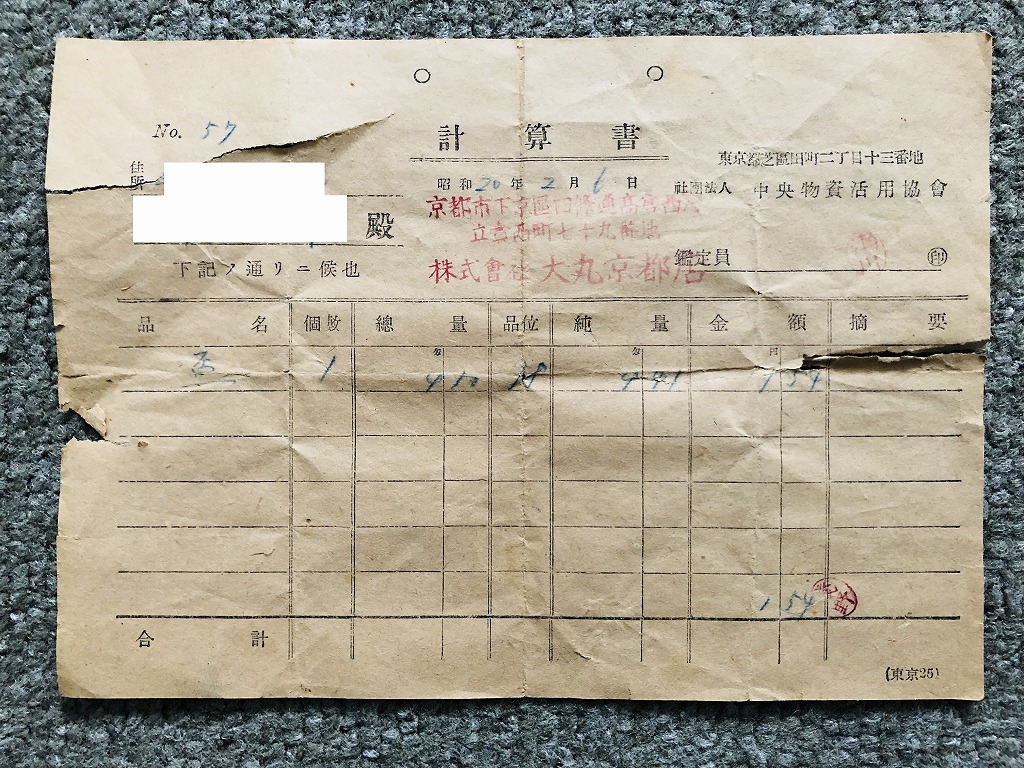 No. 57
計算書
東京都芝區田町二丁目十三番地
住所
昭和20年2月6日
社團法人 中央物資活用協會
殿
京都市下京區四條通高倉西入
立賣西町七十九番地
株式會社 大丸京都店
鑑定員 ㊞
下記ノ通リニ候也
品名 個數 總量 品位 純量 金額 摘要
匁 匁 円
1 1 54
1 54
合計
(東京25)